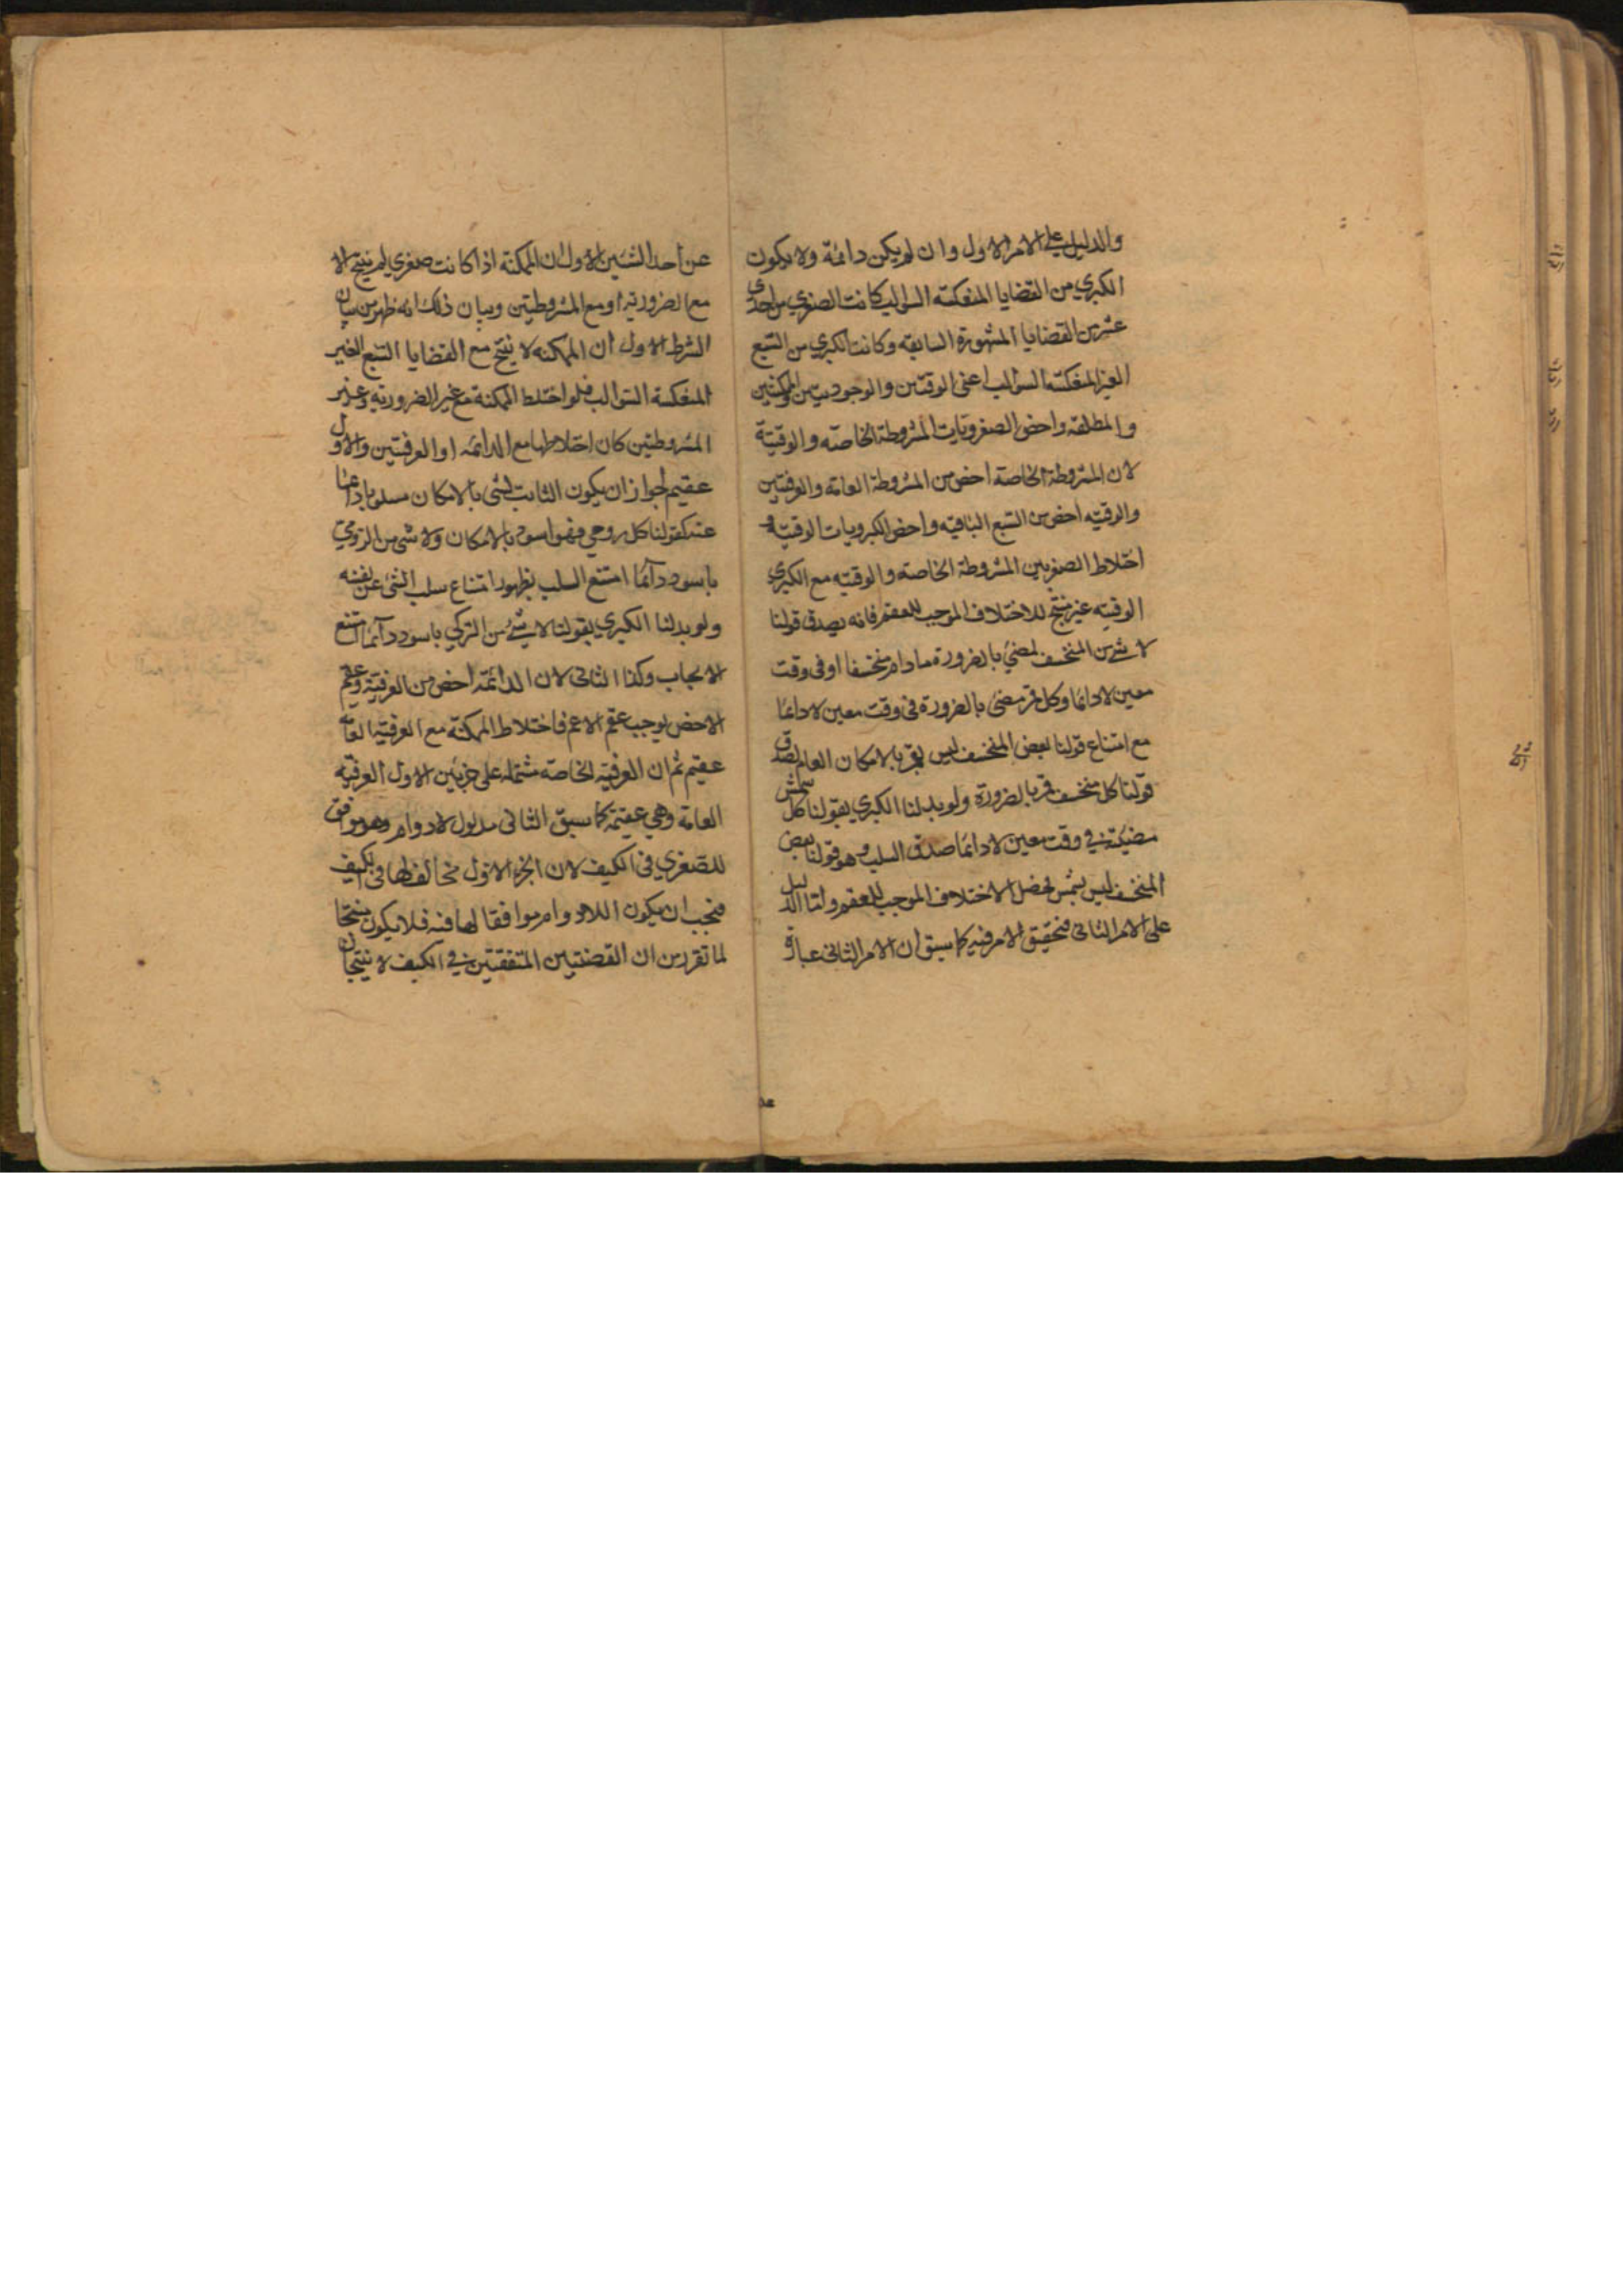 والدليل على الامر الاول وان لم يكن دائمة ولا يكون
الكبري من القضايا المنعكسة السوالب كانت الصغري من احدى
عشر من القضايا المشهورة السابقه وكانت الكبري من السبع
الغير المنعكسة السوالب اعنى الوقتين والوجوديتين والممكنتين
والمطلقه واخص الصغرويات المشروطة الخاصة والوقتية
لان المشروطة الخاصة اخص من المشروطة العامة والعرفتين
والوقتيه اخص من السبع الباقيه واخص الكبرويات الوقتية و
اختلاط الصغريين المشروطة الخاصة والوقتيه مع الكبري
الوقتيه غير منتج للاختلاف الموجب للعقم فانه يصدق قولنا
لا شئ من المنخسف لمضئ بالضرورة ما دام منخسفا او في وقت
معين لا دائما وكل قمر مضئ بالضرورة في وقت معين لا دائما
مع امتناع قولنا بعض المنخسف ليس بقمر بالامكان العام لصدق
قولنا كل منخسف قمر بالضرورة ولو بدلنا الكبري بقولنا كل شمش
مضيئة في وقت معين لا دائما صدق السلب وهو قولنا بعض
المنخسف ليس بشمس فحصل الاختلاف الموجب للعقم ولنا الدليل
على الامر الثاني فتحقيق الامر فيه كما سبق ان الامر الثاني عبارة
عن احد الشيئين الاول ان الممكنة اذا كانت صغري لم ينتج الا
مع الضرورية او مع المشروطتين وبيان ذلك انه ظهر من بيان
الشرط الاول ان الممكنة لا ينتج مع القضايا السبع الغير
المنعكسة السوالب فلو اختلط الممكنة مع غير الضرورية وغير
المشروطتين كان اختلاطها مع الدائمة او العرفتين والاول
عقيم لجواز ان يكون الثابت لشئ بالامكان مسلوبا دائما
عنه كقولنا كل رومي فهو اسود بالامكان ولا شئ من الرومي
باسود دائما امتنع السلب بظهور امتناع سلب الشئ عن نفسه
ولو بدلنا الكبري بقولنا لا شئ من التركي باسود دائما امتنع
الايجاب وكذا الثاني لان الدائمة اخص من العرفية وعقم
الاخص يوجب عقم الاعم فاختلاط الممكنة مع العرفية العامة
عقيم ثم ان العرفيه الخاصة مشتملة على جزئين الاول العرفيه
العامة وهي عقيمة كما سبق الثاني مدلول لادوام وهو موافق
للصغري في الكيف لان الجزء الاول مخالف لها في الكيف
فيجب ان يكون اللادوام موافقا لها فيه فلا يكون منتجا
لما تقرر من ان القضيتين المتفقتين في الكيف لا ينتجان